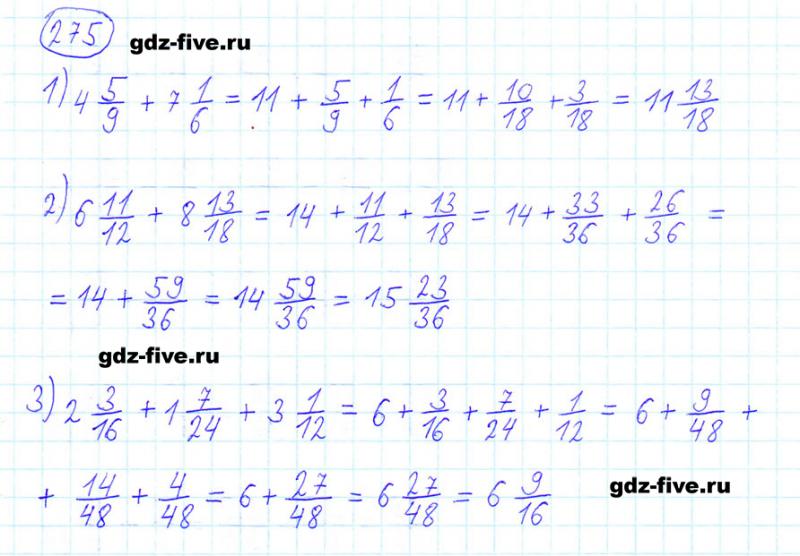 275 gdz-five.ru
1) 4 5/9 + 7 1/6 = 11 + 5/9 + 1/6 = 11 + 10/18 + 3/18 = 11 13/18
2) 6 11/12 + 8 13/18 = 14 + 11/12 + 13/18 = 14 + 33/36 + 26/36 =
= 14 + 59/36 = 14 59/36 = 15 23/36
gdz-five.ru
3) 2 3/16 + 1 7/24 + 3 1/12 = 6 + 3/16 + 7/24 + 1/12 = 6 + 9/48 +
+ 14/48 + 4/48 = 6 + 27/48 = 6 27/48 = 6 9/16
gdz-five.ru